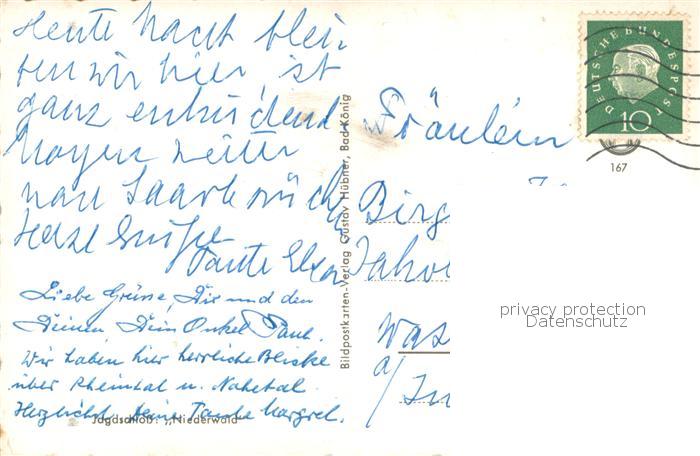 Heute Nacht blei-
ben wir hier, ist
ganz entzückend
Morgen weiter
nach Saarbrücken
Herzl Grüße
Tante Elsa
Liebe Grüsse, Dir und den
Deinen Dein Onkel Paul.
Wir haben hier herrliche Blicke
über Rheintal u. Nahetal.
Herzlichst Deine Tante Margret.
Jagdschloß: „Niederwald"
Bildpostkarten-Verlag Gustav Hübner, Bad-König
DEUTSCHE BUNDESPOST
10
167
Fräulein
Birg
Was
a/
privacy protection
Datenschutz